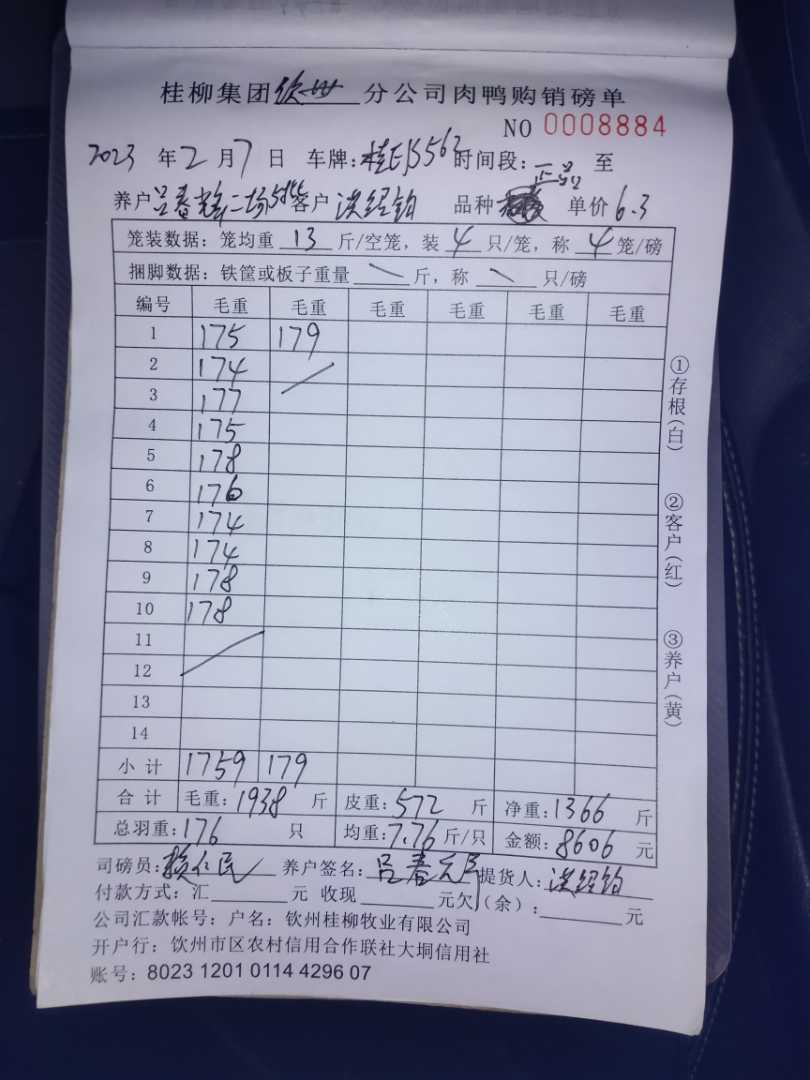 桂柳集团钦州分公司肉鸭购销磅单
NO 0008884
2023年2月7日 车牌: 时间段:正品 至
养户吕春辉二场 客户洪经钧 品种 单价6.3
笼装数据：笼均重13斤/空笼，装4只/笼，称4笼/磅
捆脚数据：铁筐或板子重量\斤，称\只/磅
编号 毛重 毛重 毛重 毛重 毛重 毛重
1 175 179
2 174
3 177
4 175
5 178
6 176
7 174
8 174
9 178
10 178
11
12
13
14
小计 1759 179
合计 毛重:1938斤 皮重:572斤 净重:1366斤
总羽重:176只 均重:7.76斤/只 金额:8606元
司磅员:赖仁民 养户签名: 提货人:洪经钧
付款方式：汇 元 收现 元欠(余)： 元
公司汇款帐号：户名：钦州桂柳牧业有限公司
开户行：钦州市区农村信用合作联社大垌信用社
账号：8023 1201 0114 4296 07
①存根(白)
②客户(红)
③养户(黄)